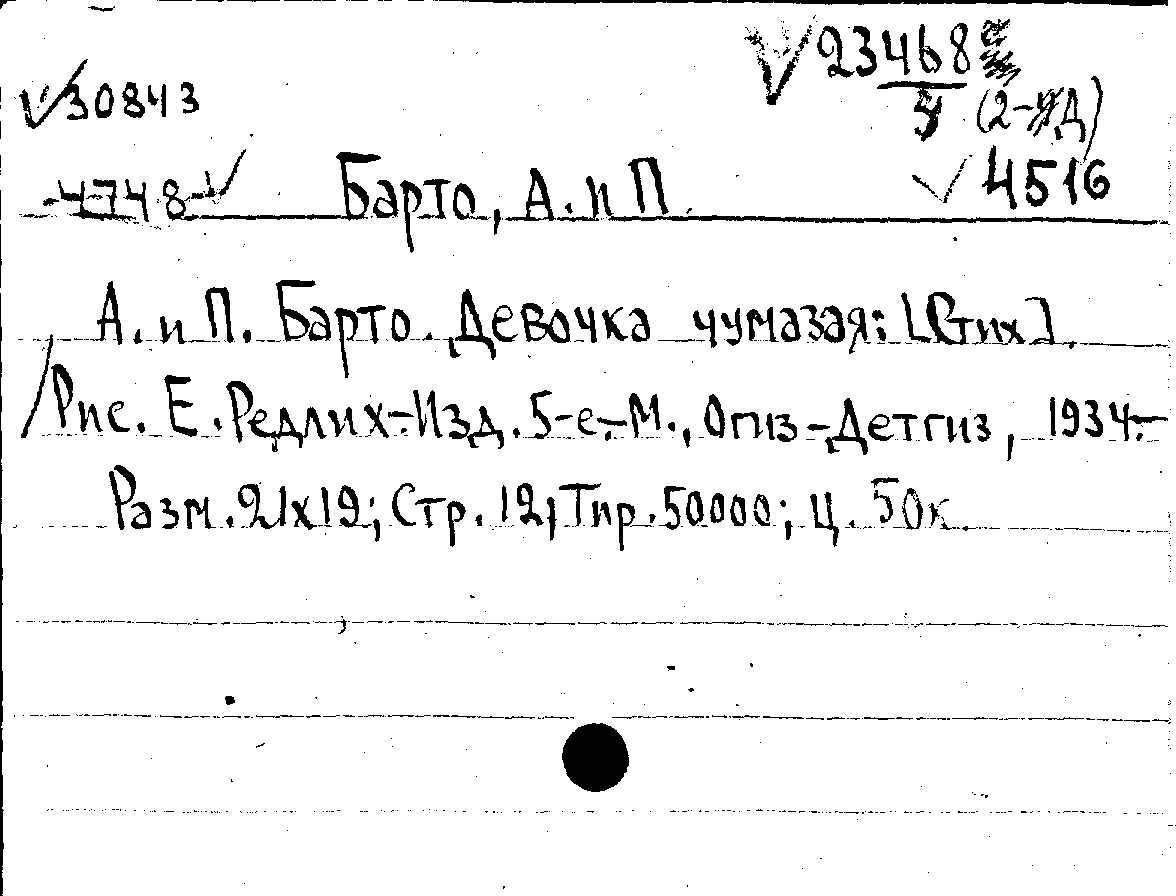 √23468
√30843
4 (2-я Д)
4748 √ Барто, А. и П. √ 4516
А. и П. Барто. Девочка чумазая: [Стих].
Рис. Е. Редлих.-Изд. 5-е.-М., Огиз-Детгиз, 1934.-
Разм. 21х19; Стр. 12; Тир. 50000; ц. 50к.